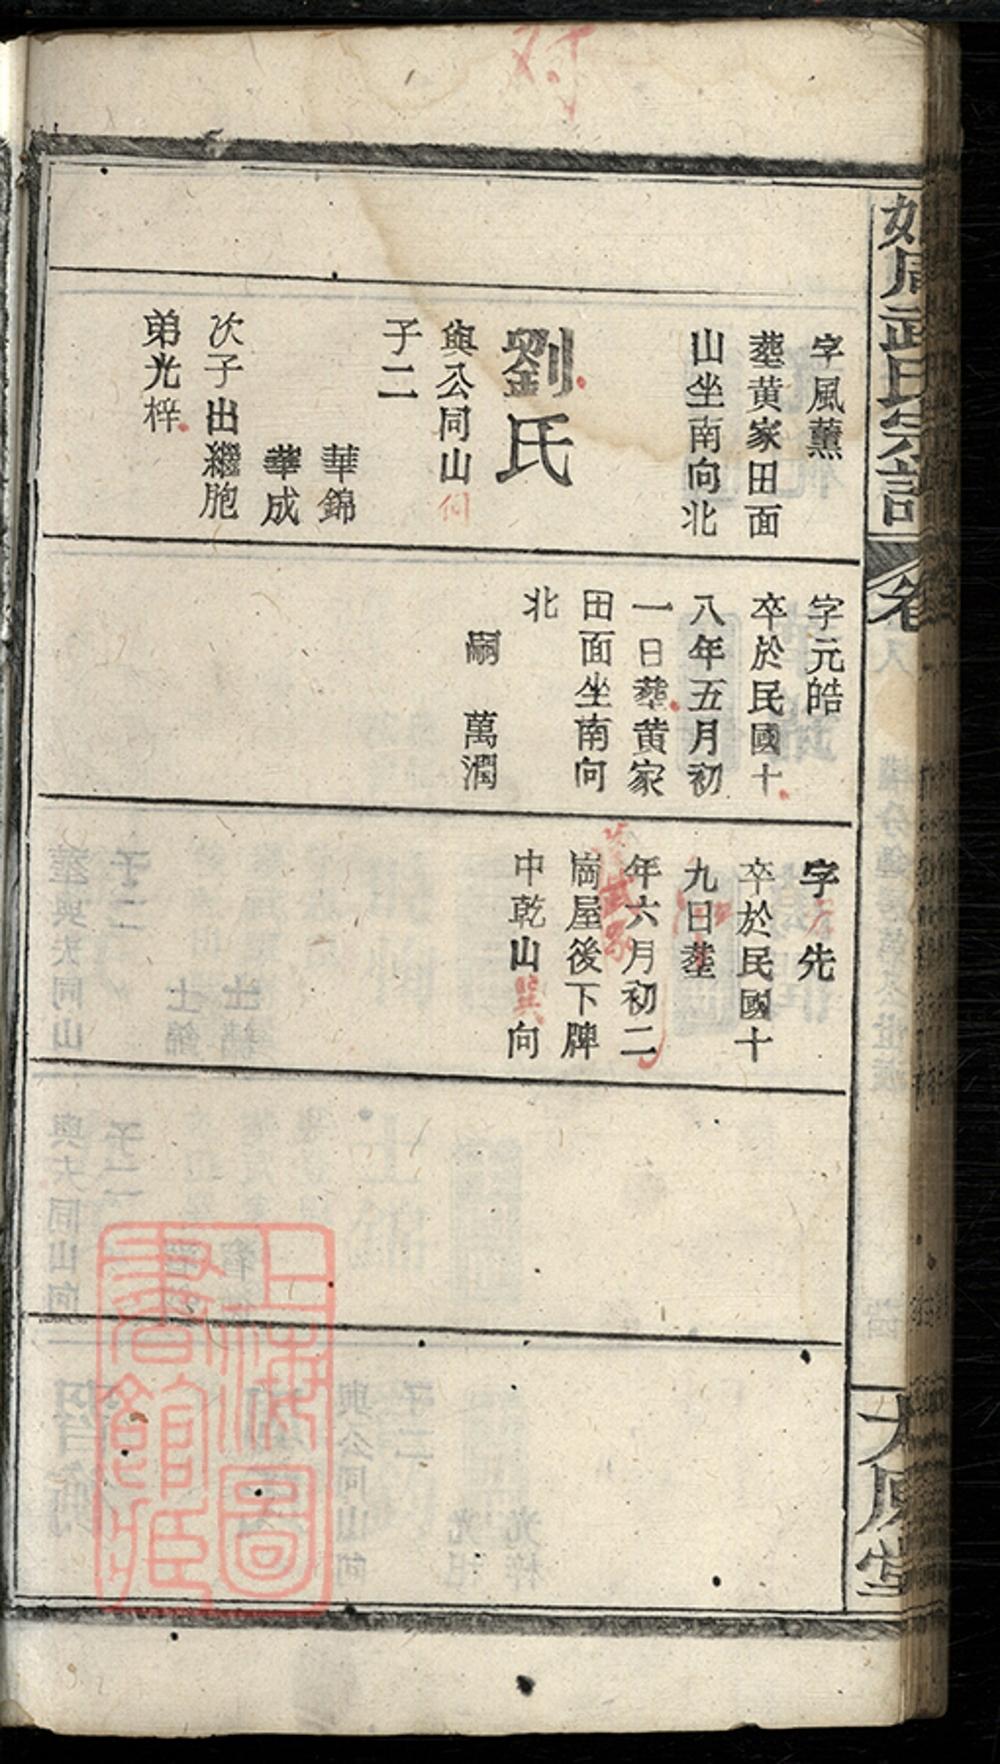 对
氏宗譜
卷
大原堂
字風薰
塟黄家田面
山坐南向北
劉氏
與公同山向
子二
華錦
華成
次子出繼胞
弟光梓
字元皓
卒於民國十
八年五月初
一日塟黄家
田面坐南向
北
嗣 萬潤
字先
卒於民國十
九日塟
年六月初二
崗屋後下牌
中乾山巽向
上海圖
書館藏